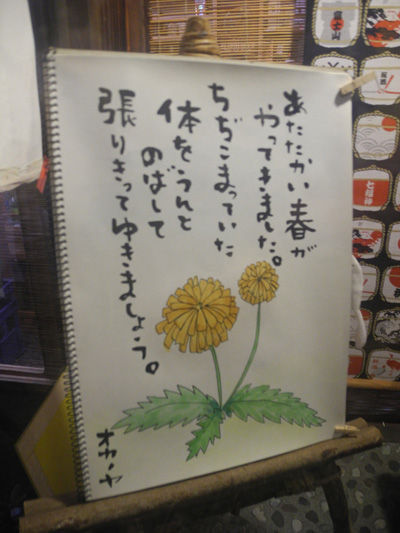 あたたかい春が
やってきました。
ちぢこまっていた
体をうんと
のばして
張りきってゆきましょう。
オカヤ
富士山
七福神